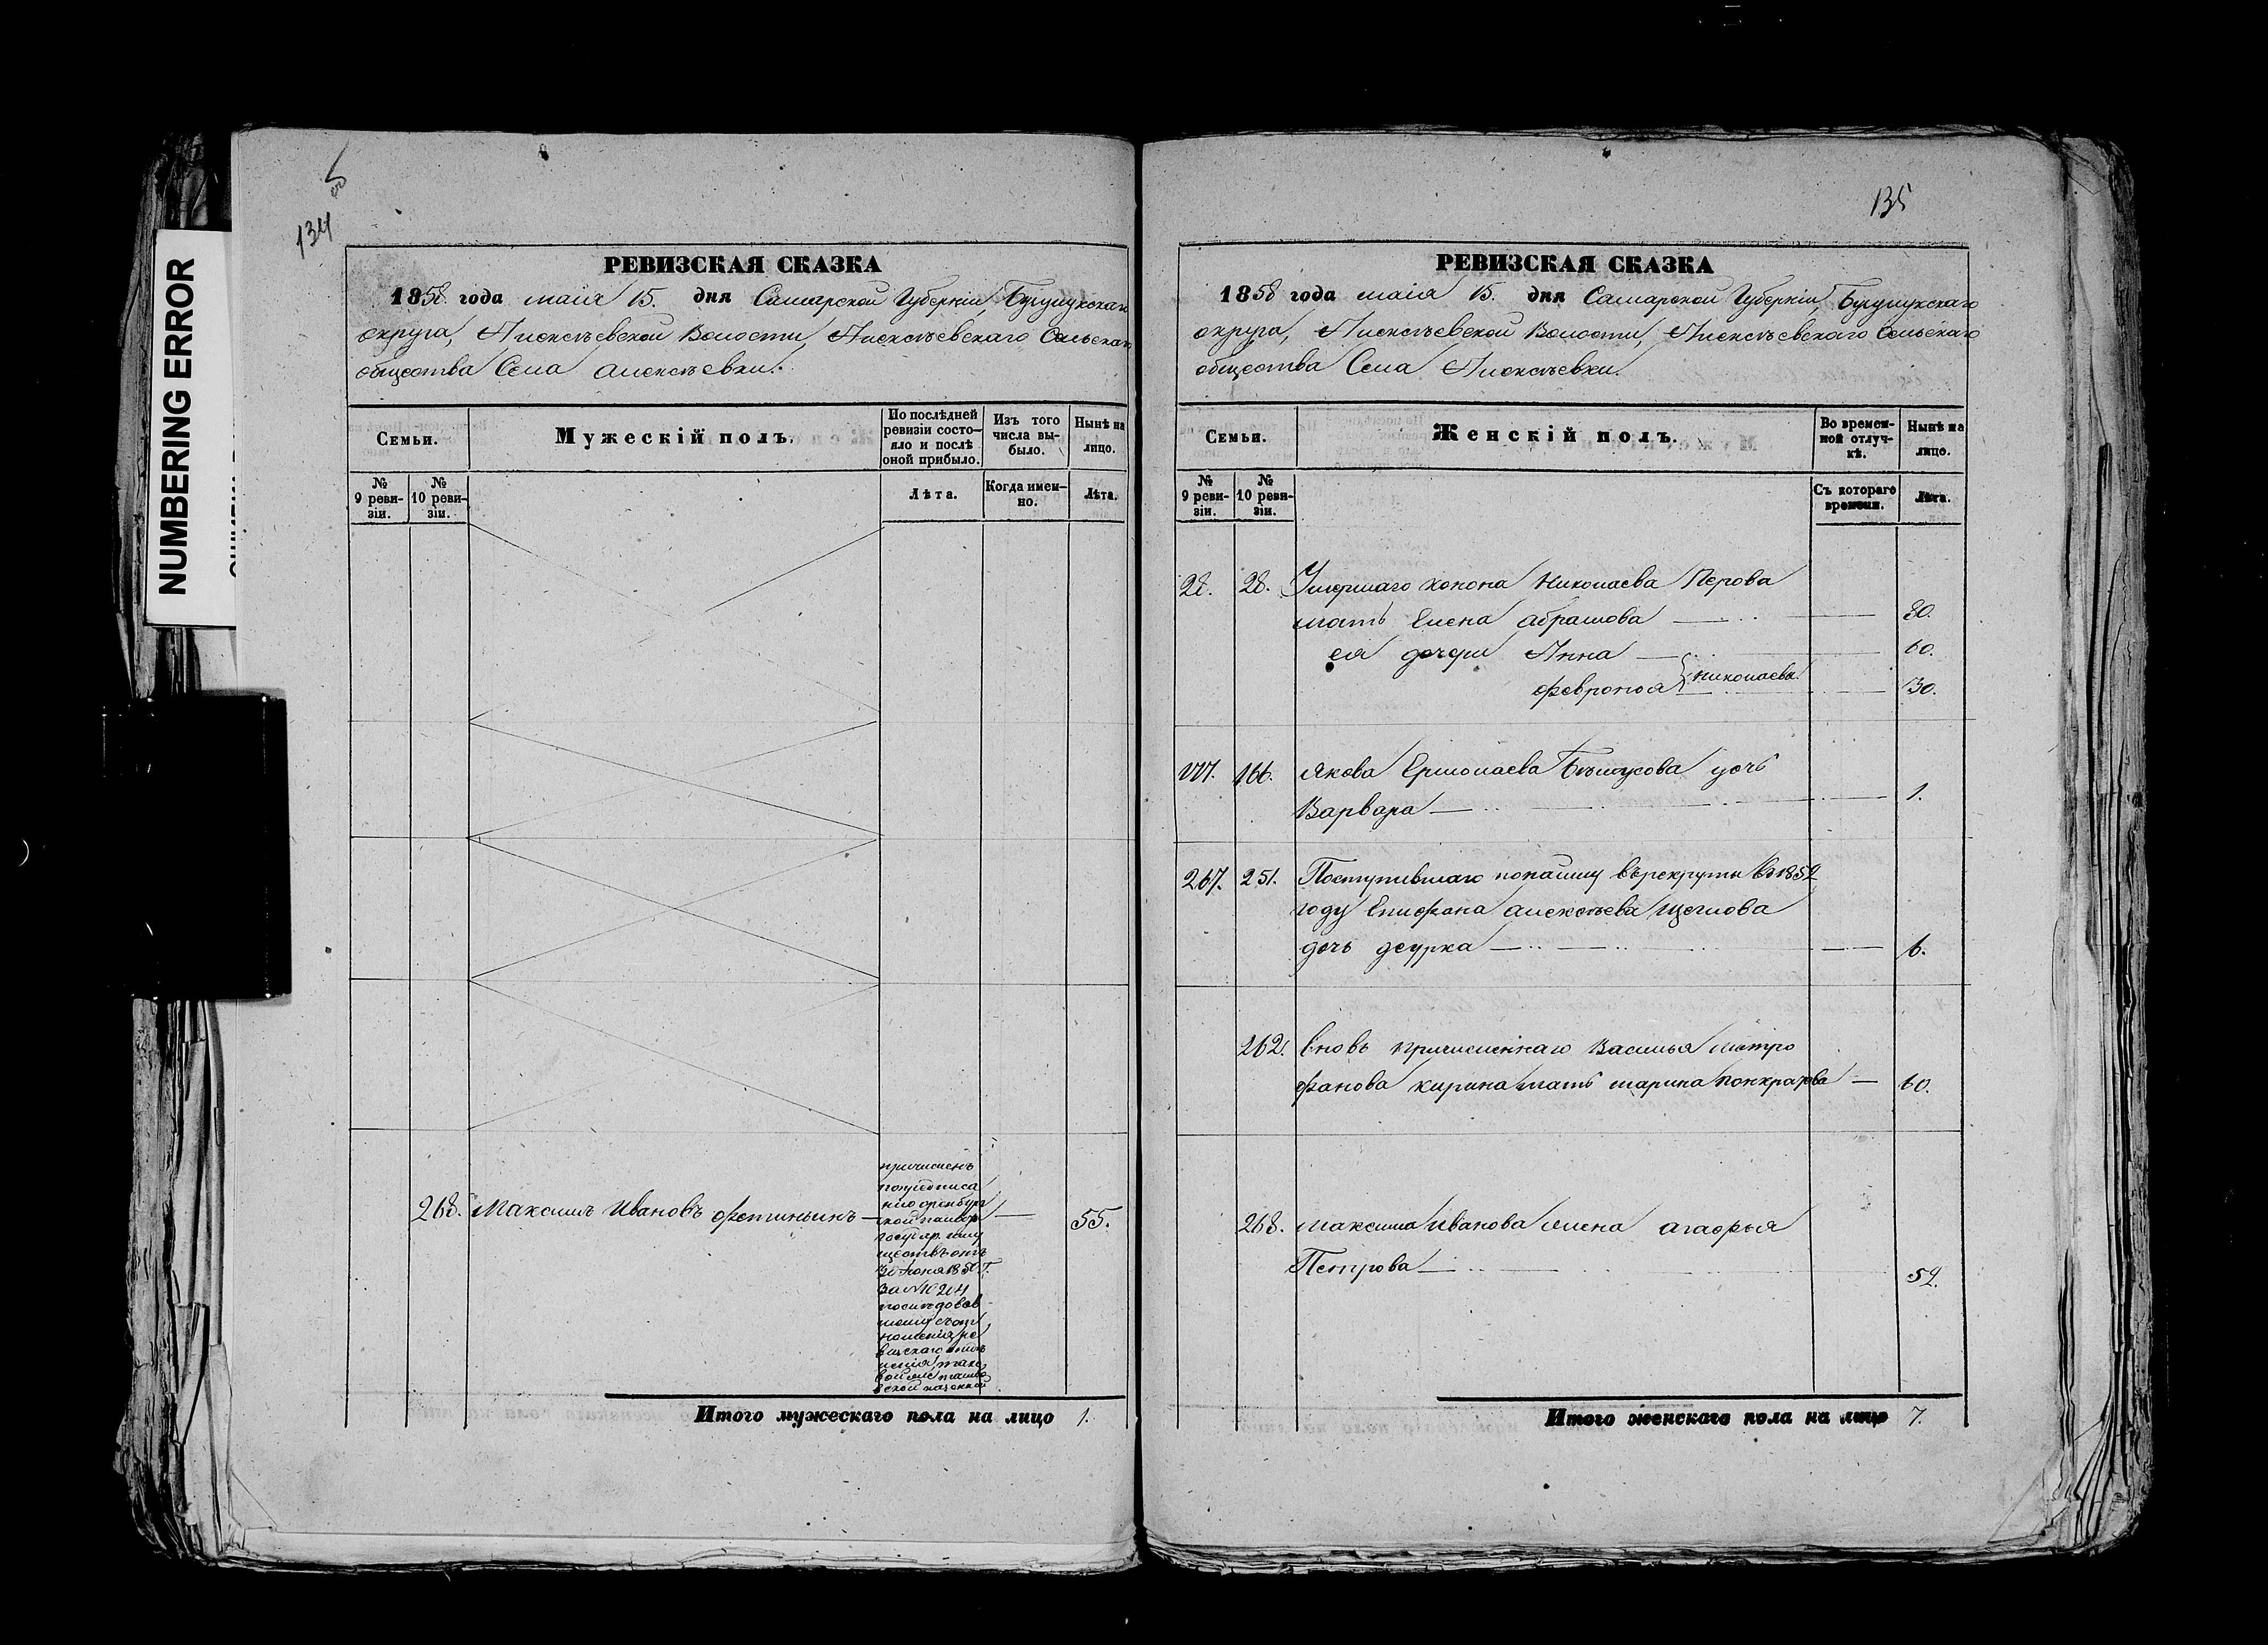 NUMBERING ERROR
134
РЕВИЗСКАЯ СКАЗКА
1858. года маiя 15. дня Самарской Губернiи, Бузулукскаго
округа, Алексѣевской Волости, Алексѣевскаго Сельскаго
общества Села Алексѣевки.
Семьи.
Мужескiй полъ.
По послѣдней ревизiи состо-яло и послѣ оной прибыло.
Изъ того числа вы-было.
Нынѣ на лицо.
№ 9 реви-зiи.
№ 10 реви-зiи.
Лѣта.
Когда имен-но.
Лѣта.
268. Максимъ Ивановъ Фетиньинъ — 55.
причисленъ
попредписа
нiю оренбург
ской палаты
государ. иму
ществъ отъ
за №
послѣдовав
Итого мужескаго пола на лицо 1.
135
РЕВИЗСКАЯ СКАЗКА
1858 года маiя 15. дня Самарской Губернiи, Бузулукскаго
округа, Алексѣевской Волости, Алексѣевскаго Сельскаго
общества Села Алексѣевки.
Семьи.
Женскiй полъ.
Во времен-ной отлуч-кѣ.
Нынѣ на лицо.
№ 9 реви-зiи.
№ 10 реви-зiи.
Съ котораго времени.
Лѣта.
28. 28. Умершаго Конона Николаева Перова
мать Елена Абрамова — 80.
ея дочери Анна — 60.
Февронья } Николаевы — 30.
177. 166. Якова Ермолаева дочь
Варвара — 1.
267. 251. Поступившаго понайму върекруты въ 1852
году Епифана Алексѣева Щеглова
дочь — 6.
262. Вновь причисленнаго Василья Митро
фанова Кирина мать Марина Понкратова — 60.
268. Максима Иванова жена Агафья
Петрова — 52.
Итого женскаго пола на лицо 7.